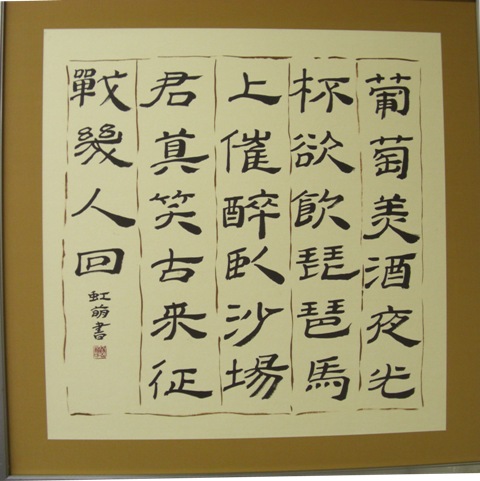 葡萄美酒夜光
杯欲飲琵琶馬
上催醉臥沙場
君莫笑古来征
戰幾人回
虹萌書